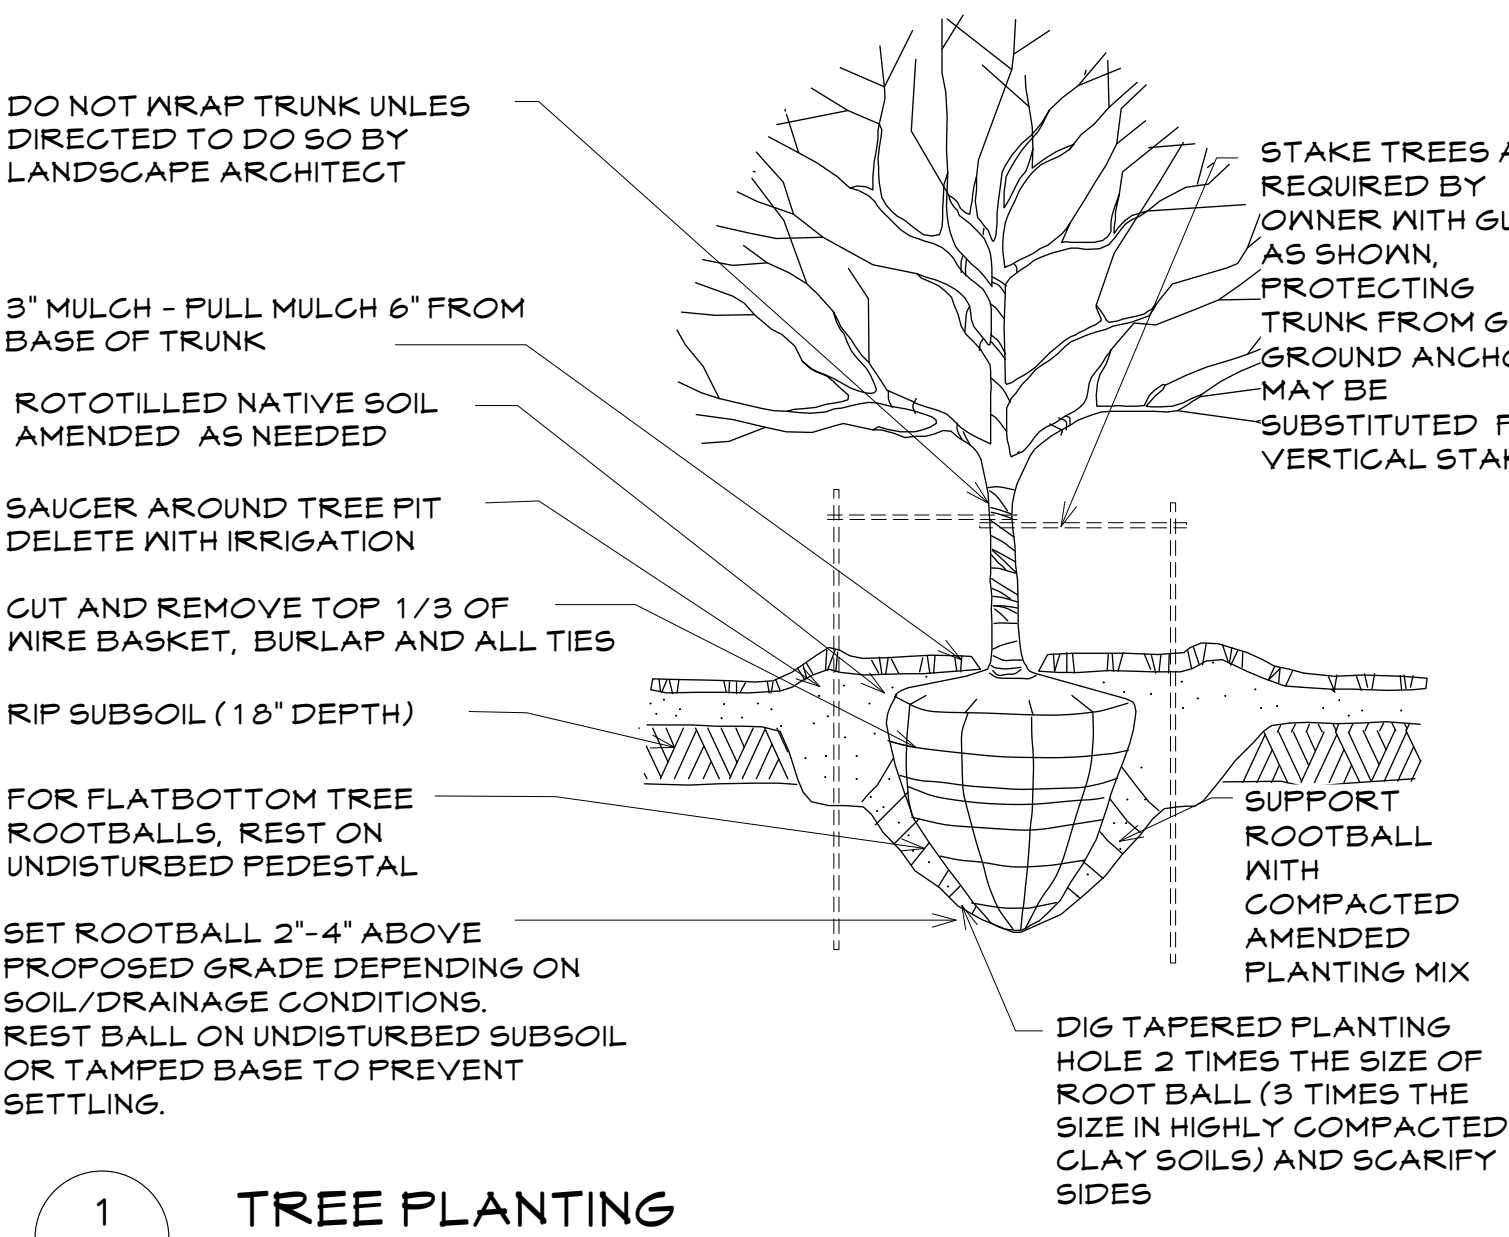 DO NOT WRAP TRUNK UNLES
DIRECTED TO DO SO BY
LANDSCAPE ARCHITECT
3" MULCH - PULL MULCH 6" FROM
BASE OF TRUNK
ROTOTILLED NATIVE SOIL
AMENDED AS NEEDED
SAUCER AROUND TREE PIT
DELETE WITH IRRIGATION
CUT AND REMOVE TOP 1/3 OF
WIRE BASKET, BURLAP AND ALL TIES
RIP SUBSOIL (18" DEPTH)
FOR FLATBOTTOM TREE
ROOTBALLS, REST ON
UNDISTURBED PEDESTAL
SET ROOTBALL 2"-4" ABOVE
PROPOSED GRADE DEPENDING ON
SOIL/DRAINAGE CONDITIONS.
REST BALL ON UNDISTURBED SUBSOIL
OR TAMPED BASE TO PREVENT
SETTLING.
STAKE TREES
REQUIRED BY
OWNER WITH
AS SHOWN,
PROTECTING
TRUNK FROM
GROUND
MAY BE
SUBSTITUTED
VERTICAL
SUPPORT
ROOTBALL
WITH
COMPACTED
AMENDED
PLANTING MIX
DIG TAPERED PLANTING
HOLE 2 TIMES THE SIZE OF
ROOT BALL (3 TIMES THE
SIZE IN HIGHLY COMPACTED
CLAY SOILS) AND SCARIFY
SIDES
1
TREE PLANTING